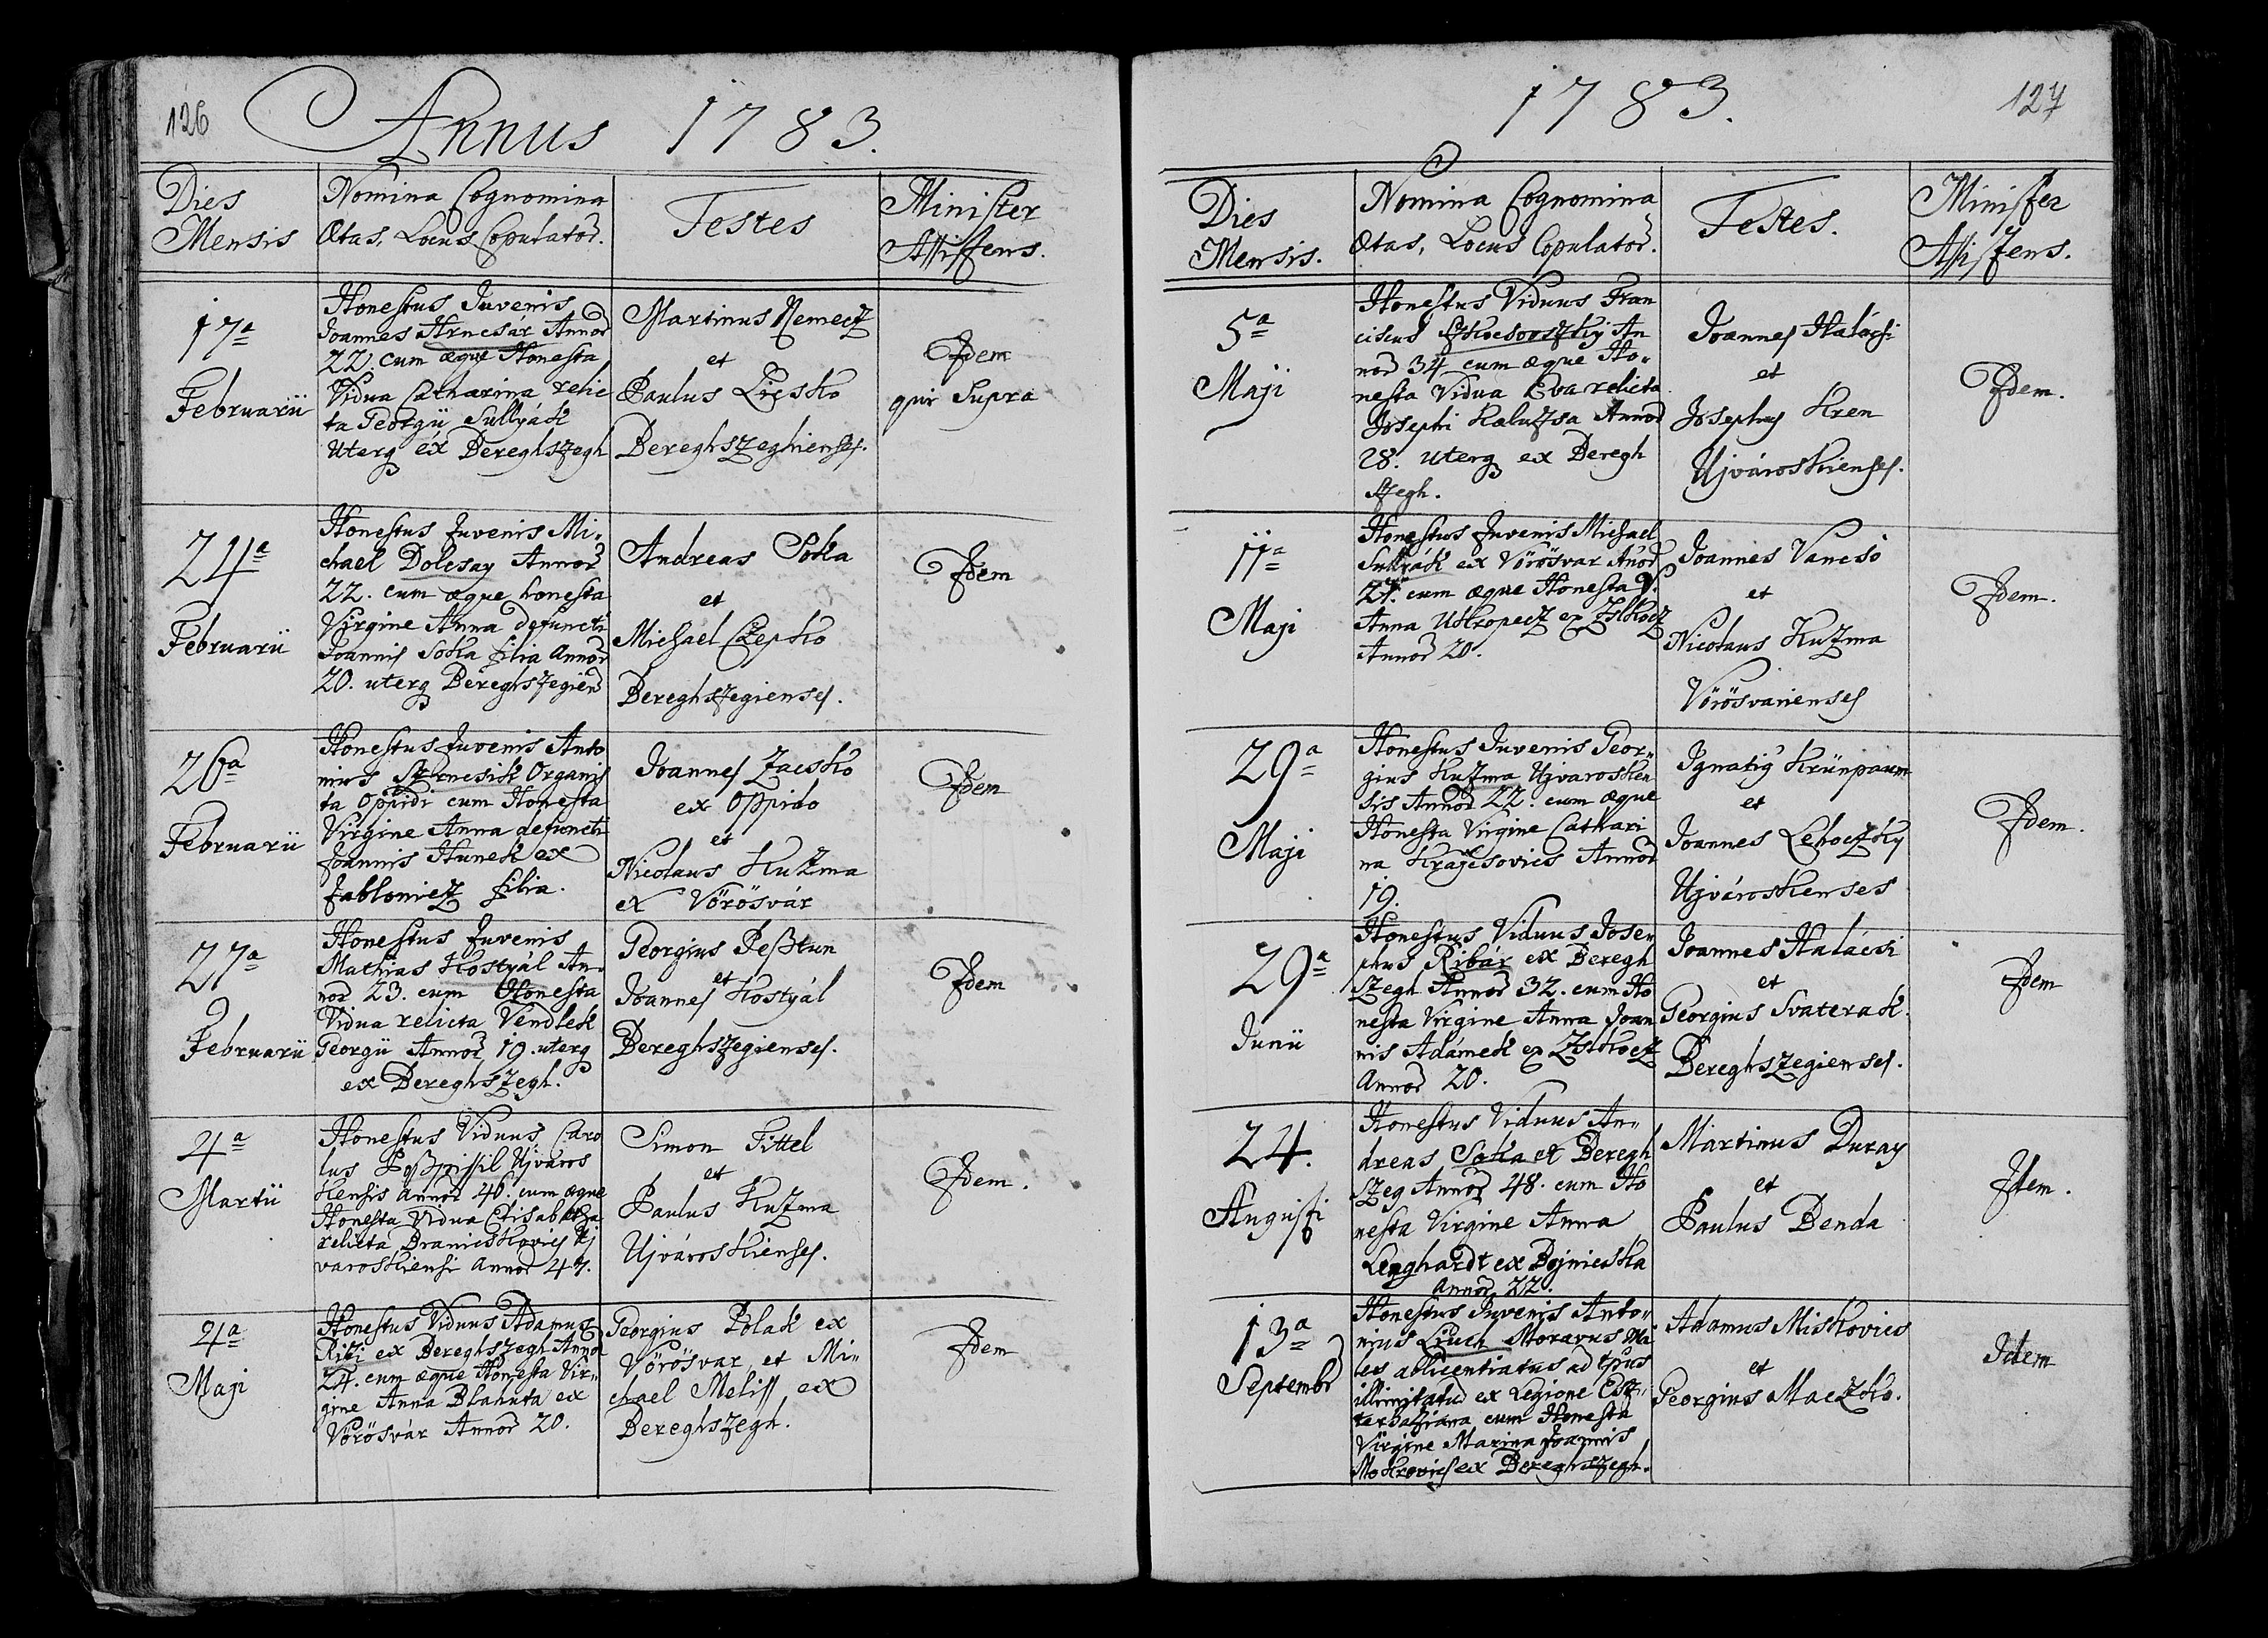 126
Annus 1783.
Dies
Mensis
Nomina Cognomina
Ætas, Locus Copulator.
Testes
Minister
Assistens.
17a
Februarii
Honestus Juvenis
Joannes Hrncsár Annor
22. cum æque Honesta
Vidua Catharina relic
ta Georgii Sullyách
Uterq ex Bereghszegh
Martinus Nemecz
et
Paulus Liessko
Bereghszeghienses.
Idem
qui Supra
24a
Februarii
Honestus Juvenis Mi-
chael Dolesay Annor
22. cum æque honesta
Virgine Anna defuncti
Joannis Soka filia Annor
20. uterq Bereghszegien
Andreas Soka
et
Michael Czepko
Bereghszegienses.
Idem
26a
Februarii
Honestus Juvenis Anto
nius Organis
ta Oppidi cum Honesta
Virgine Anna defuncti
Joannis Hunek ex
Jablonicz filia.
Joannes Zacsko
ex Oppido
et
Nicolaus Kuzma
ex Vörösvár
Idem
27a
Februarii
Honestus Juvenis
Mathias Kostyál An-
nor 23. cum Honesta
Vidua relicta Vendlek
Georgii Annor 19. uterq
ex Bereghszegh.
Georgius Peßtun
et
Joannes Kostyál
Bereghszegienses.
Idem
4a
Martii
Honestus Viduus Caro
lus Ujváros
kensis Annor 46. cum æque
Honesta Vidua Elisabetha
relicta Branieskovics Uj
varoskiensi Annor 47.
Simon Tittel
et
Paulus Kuzma
Ujvároskienses.
Idem.
4a
Maji
Honestus Viduus Adamus
Rizi ex Bereghszegh Annor
24. cum æque Honesta Vir-
gine Anna Blahuta ex
Vörösvár Annor 20.
Georgius Polak ex
Vörösvar, et Mi-
chael Meliss ex
Bereghszegh.
Idem
1783.
127
Dies
Mensis.
Nomina Cognomina
Ætas, Locus Copulator.
Testes.
Minister
Assistens.
5a
Maji
Honestus Viduus Fran
ciscus An
nor 34 cum æque Ho-
nesta Vidua Eva relicta
Josephi Kaluzsa Annor
28. uterq ex Beregh
szegh.
Joannes Halácsi
et
Josephus Kren
Ujvároskienses.
Idem.
11a
Maji
Honestus Juvenis Michael
Sullyách ex Vörösvar Anor
27. cum æque Honesta V.
Anna Ukropecz ex
Annor 20.
Joannes Vancsó
et
Nicolaus Kuzma
Vörösvarienses
Idem.
29a
Maji
Honestus Juvenis Geor-
gius Kuzma Ujvarosken
sis Annor 22. cum æque
Honesta Virgine Cathari
na Krajcsovics Annor
19.
Ignatius Krünpaum
et
Joannes Lehoczky
Ujvároskenses
Idem.
29a
Junii
Honestus Viduus Jose-
phus Ribár ex Beregh
szegh Annor 32. cum Ho
nesta Virgine Anna Joan
nis Adámek ex
Annor 20.
Joannes Halácsi
et
Georgius Svaterak.
Bereghszegienses.
Idem
24.
Augusti
Honestus Viduus An-
dreas Soka ex Beregh
szeg Annor 48. cum Ho
nesta Virgine Anna
Lenghardt ex Bojnicska
Annor 22.
Martinus Duray
et
Paulus Benda
Idem.
13a
Septembr
Honestus Juvenis Anto-
nius Liuch Moravus Mi
les ablicentiatus ad tpus
illimitatu ex Legione Esz-
terhaziana cum Honesta
Virgine Marina Joannis
Mokrovics ex Bereghszegh.
Adamus Miskovics
et
Georgius Maczko.
Idem